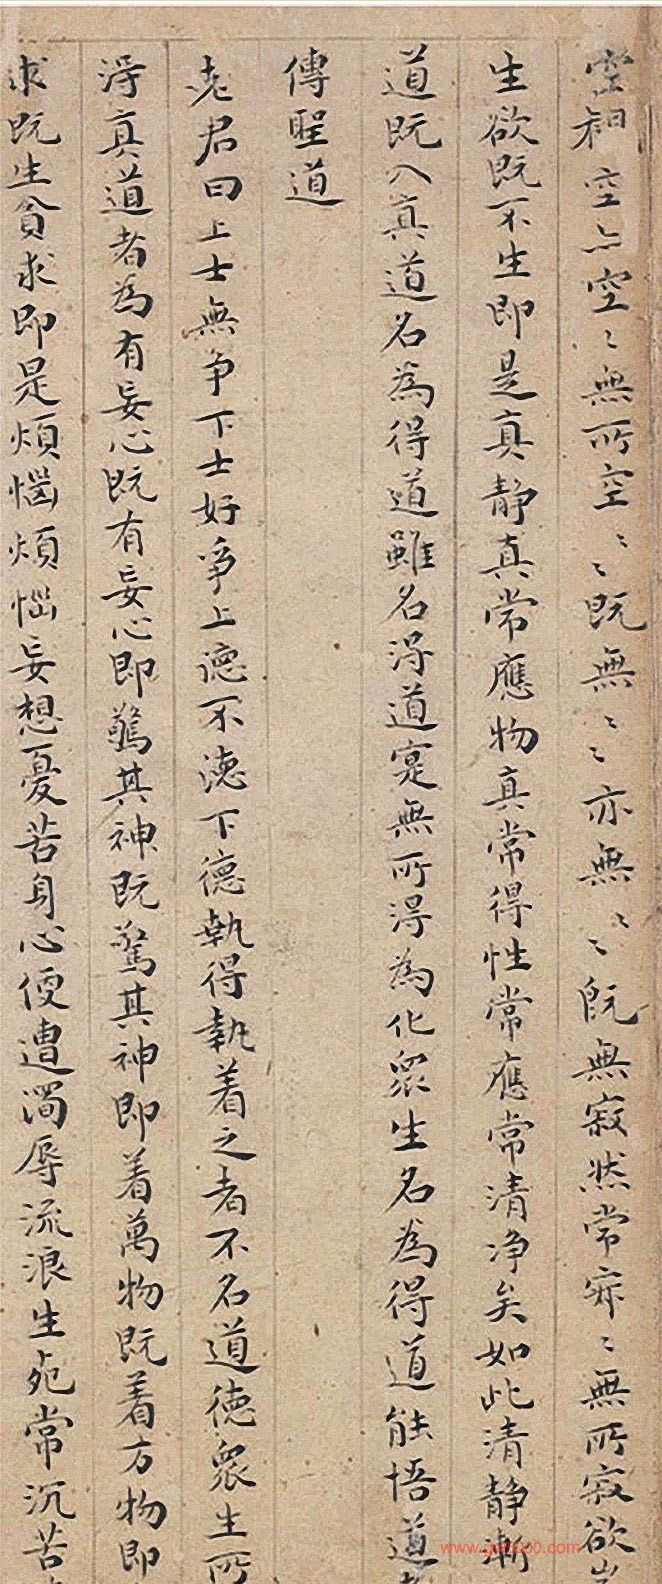 空相空亦空〻無所空〻〻既無〻〻亦無〻〻既無寂然常寂〻無所寂欲
生欲既不生即是真靜真常應物真常得性常應常清净矣如此清靜漸
道既入真道名為得道雖名得道寔無所得為化眾生名為得道能悟道
傳聖道
老君曰上士無争下士好爭上德不德下德執得執着之者不名道德眾生所
得真道者為有妄心既有妄心即驚其神既驚其神即着萬物既着万物即
求既生貪求即是煩惱煩惱妄想憂苦身心便遭濁辱流浪生死常沉苦